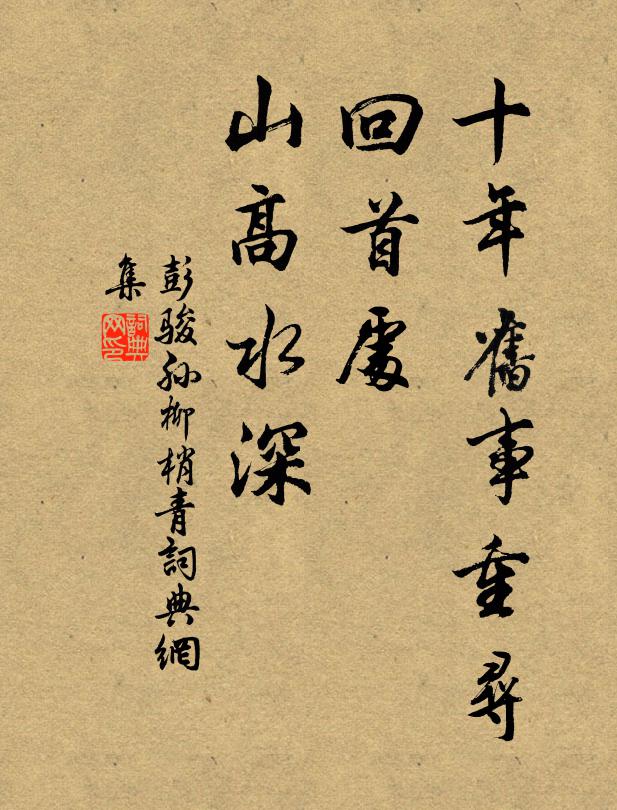 十年舊事重尋
回首處
山高水深
彭骏孙柳梢青詞典網
集
詞典网印